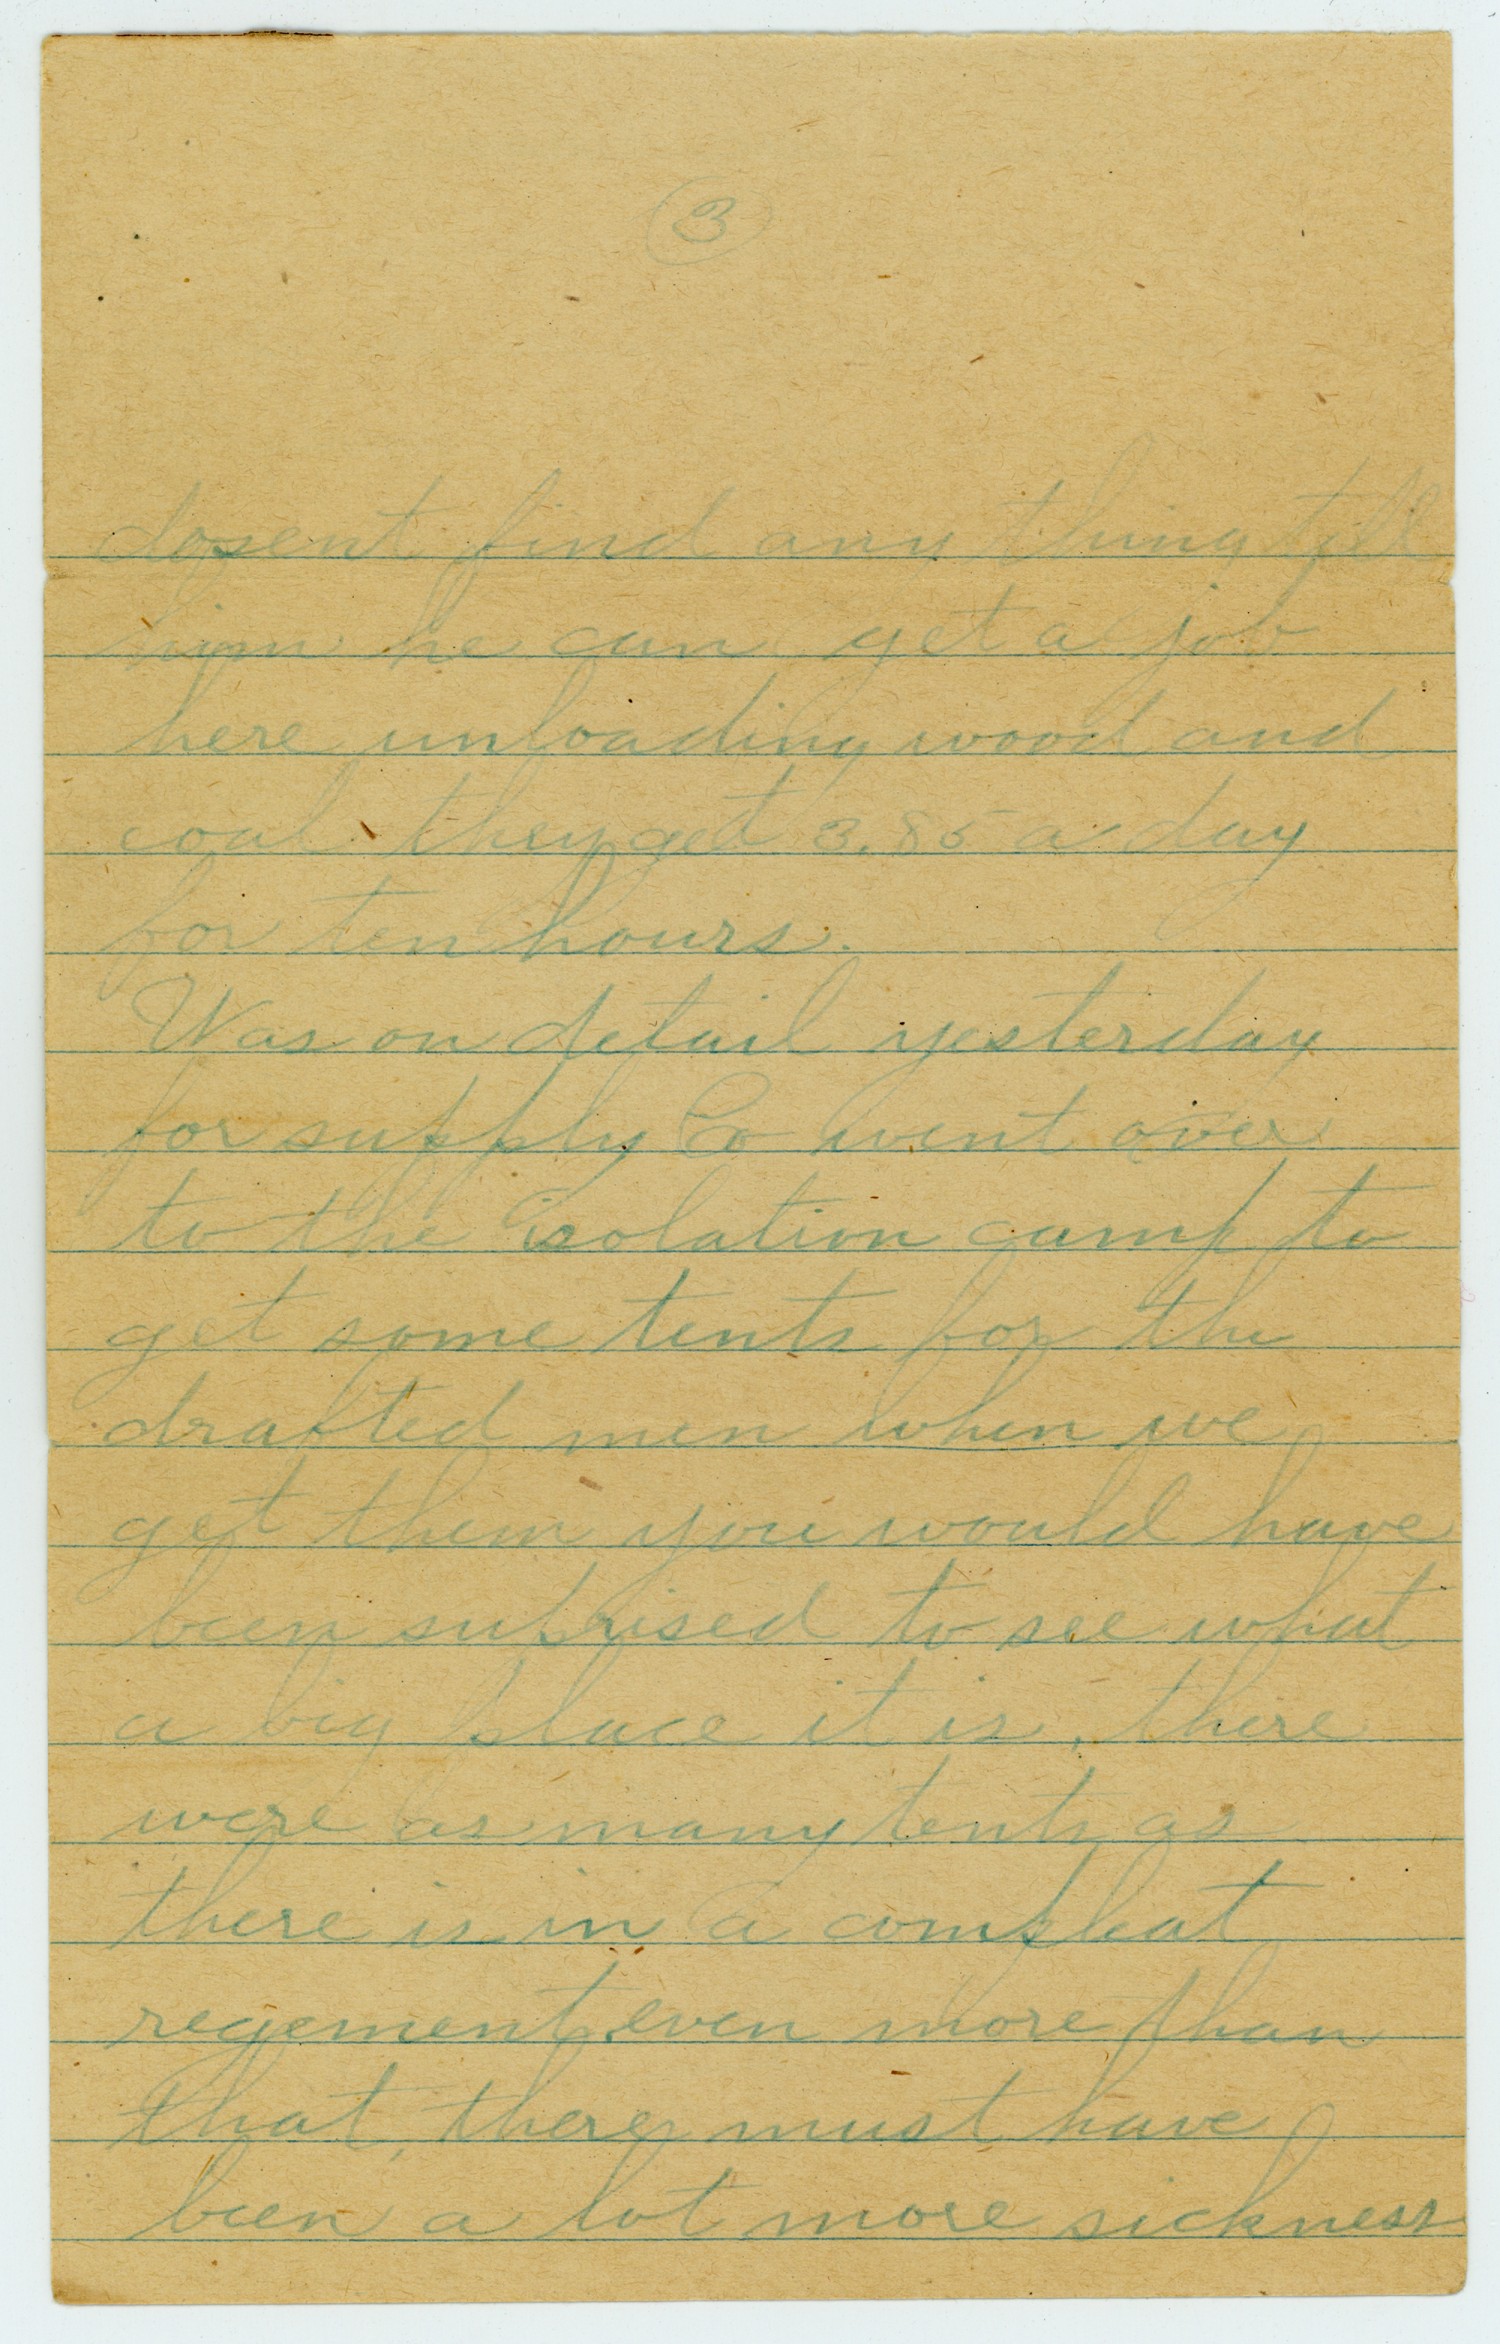 3
dosent find any thing tell
him he can get a job
here unloading wood and
coal they get 3.85 a day
for ten hours.
Was on detail yesterday
for supply Co went over
to the isolation camp to
get some tents for the
drafted men when we
get them you would have
been suprised to see what
a big place it is, there
were as many tents as
there is in a compleat
regement even more than
that, there must have
been a lot more sickness